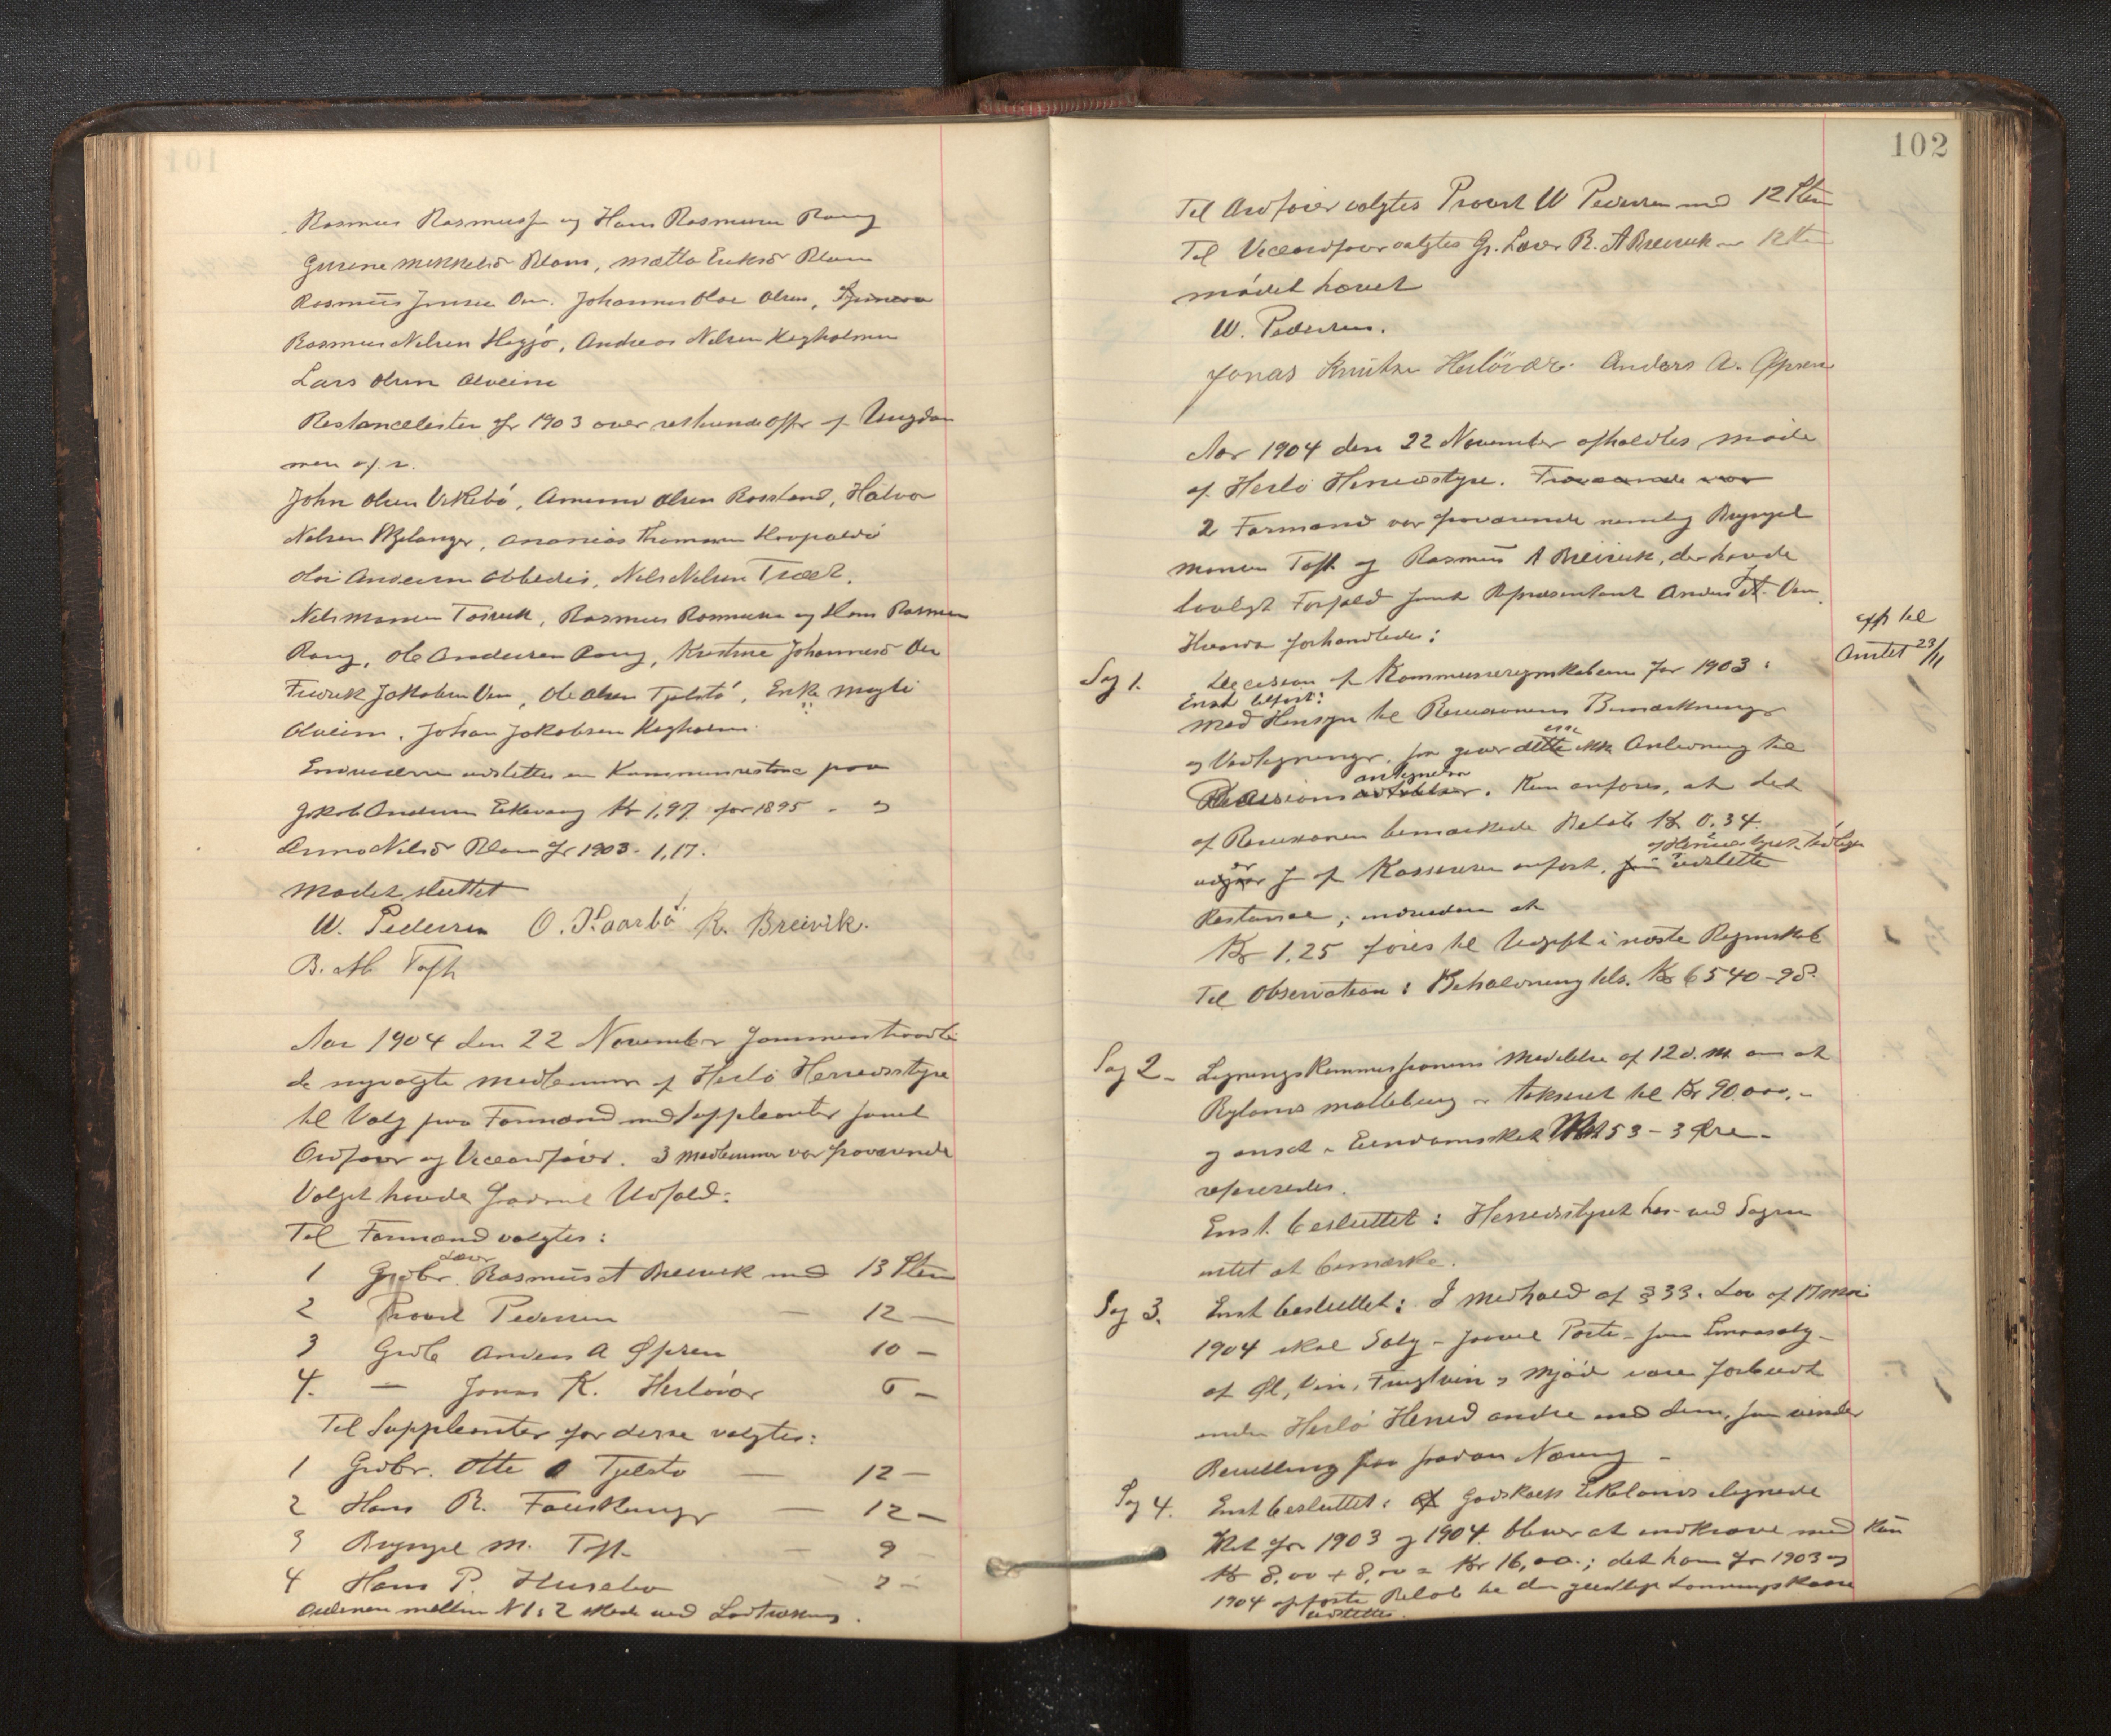 Rasmus Rasmussen og Hans Rasmussen Rong
Gurine Mikkelsd Blom, Matta Eriksd Blom
Rasmus Jensen Oen. Johannes Olai Olsen,
Rasmus Nilsen Hegjö, Andreas Nilsen Hegholmen
Lars Olsen Alveim
Restancelisten for 1903 over resterende Offer af Ungdom
men af.
John Olsen Vikebö, Olsen Rossland, Halvor
Nilsen Bjelanger, Ananias Thomassen
Andersen, Nils Nilsen Træet.
Nils Monsen Torsvik, Rasmus Rasmussen og Hans Rasmussen
Rong, Ole Andersen Rong, Kristine Johannesd Oen
Fredrik Jakobsen Oen, Ole Olsen Tjelstö, Enke Magli
Alveim. Johan Jakobsen Hegholmen.
Endvidere udslettes en Kommunerestance paa
Jakob Andersen Eikevang Kr 1,97 for 1895 - og
Anna Nilsd Blom for 1903 - 1,17.
Mödet sluttet
W. Pedersen O. Kaarbö R. Breivik.
B. M. Toft
Aar 1904 den 22 November sammentraadte
de nyvalgte Medlemmer af Herlö Herredsstyre
til Valg paa Formænd med Suppleanter samt
Ordförer og Viceordförer. 3 Medlemmer var fraværende
Valget havde saadant Udfald:
Til Formænd valgtes:
Lærer
1 Grdbr. Rasmus A Breivik med 13 Stem
2 Provst Pedersen — 12 —
3 Grdb Anders A Öpsen 10 —
4. — Jonas K. Herlövær 6 —
Til Suppleanter for disse valgtes:
1 Grdbr. Otte O Tjelstö — 12 —
2 Hans R. Fauskanger — 12 —
3 Brynjel M. Toft — 9 —
4 Hans P. Husebö — 7 —
Ordenen mellem N 1 & 2 skede ved Lodtrækning.
102
Til Ordförer valgtes Provst W Pedersen med 12 Stem
Til Viceordförer valgtes Gr. Lærer R. A Breivik m 12 Stem
Mödet hævet
W. Pedersen.
Jonas Knutsen Herlövær. Anders A. Öpsen
Aar 1904 den 22 November afholdtes Möde
af Herlö Herredsstyre. Fraværende var
2 Formænd var fraværende nemlig Brynjel
Monsen Toft og Rasmus A Breivik, der havde
lovligt Forfald samt Repræsentant Anders A. Oen.
Herved forhandledes:
exp til
Amtet 29/11
Sag 1. Decision af Kommuneregnskabene for 1903:
Enst besluttet:
Med Hensyn til Revisionens Bemærkninger
og Vedtegninger, saa giver disse ikke Anledning til
antegnelser
Decisions. Kun anföres, at det
af Revisionen bemærkede Beløb Kr 0.34
er af Kassereren anfört, udslettede
Restance, endvidere at
Kr 1,25 föres til Udgift i næste Regnskab
Til Observation: Beholdning tils. Kr 6540-98.
Sag 2 - Ligningskommissionens Meddelelse af 12 d. M. om at
Rylands Möllebrug er takseret til Kr 90.000,-
og ansat i Eiendomsskat 53 - 3 Öre -
refereredes.
Enst. besluttet: Herredsstyret har ved Sagen
intet at bemærke.
Sag 3. Enst besluttet: I Medhold af § 33. Lov af 17 Mai
1904 skal Salg - saavel Parti - som Smaasalg -
af Øl, Vin, Frugtvin & Mjöd være forbudt
inden Herlö Herred andre end dem, som
Bevilling paa saadan Næring -
Sag 4. Enst besluttet: Godskalk Eikelands ilignede
Skat for 1903 og 1904 bliver at indkræve med kun
Kr 8,00 + 8,00 = Kr 16,00.; det ham for 1903 og
1904 opförte Belöb til den geistlige Lönningskasse
udslettes.